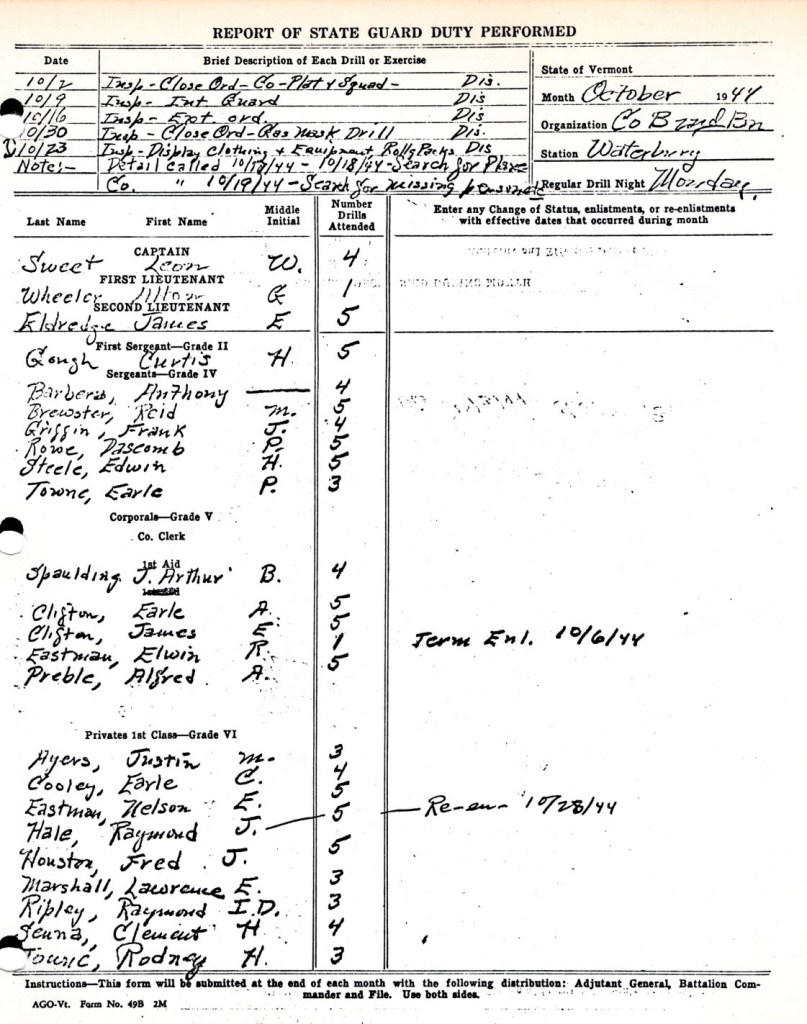 REPORT OF STATE GUARD DUTY PERFORMED
Date Brief Description of Each Drill or Exercise
10/2 Insp-Close Ord-Co-Plat & Squad- Dis.
10/9 Insp- Int Guard Dis
10/16 Insp- Ext. ord. Dis
10/30 Insp-Close Ord-Gas Mask Drill Dis.
10/23 Insp-Display Clothing & Equipment Rolls Packs Dis
Note:- Detail called 10/17/44 - 10/18/44-Search for Plane
Co. " 10/19/44-Search for missing
State of Vermont
Month October 1944
Organization Co B 2nd Bn
Station Waterbury
Regular Drill Night Monday.
Last Name First Name Middle Initial Number Drills Attended
Enter any Change of Status, enlistments, or re-enlistments
with effective dates that occurred during month
CAPTAIN
Sweet Leon W. 4
FIRST LIEUTENANT
Wheeler G 1
SECOND LIEUTENANT
Eldredge James E 5
First Sergeant—Grade II
Gough Curtis H. 5
Sergeants—Grade IV
Barbera, Anthony — 4
Brewster, Reid M. 5
Griffin, Frank J. 4
Rowe, Dascomb P. 5
Steele, Edwin H. 5
Towne, Earle P. 3
Corporals—Grade V
Co. Clerk
1st Aid
Spaulding J. Arthur B. 4
Clifton, Earle A. 5
Clifton, James E 5
Eastman, Elwin R. 1 Term Enl. 10/6/44
Preble, Alfred A. 5
Privates 1st Class—Grade VI
Ayers, Justin M. 3
Cooley, Earle C. 4
Eastman, Nelson E. 5
Hale, Raymond J. — 5 — Re-en- 10/28/44
Houston, Fred J. 5
Marshall, Lawrence E. 3
Ripley, Raymond I.D. 3
Senna, Clement H 4
Rodney H. 3
Instructions—This form will be submitted at the end of each month with the following distribution: Adjutant General, Battalion Com-
mander and File. Use both sides.
AGO-Vt. Form No. 49B 2M